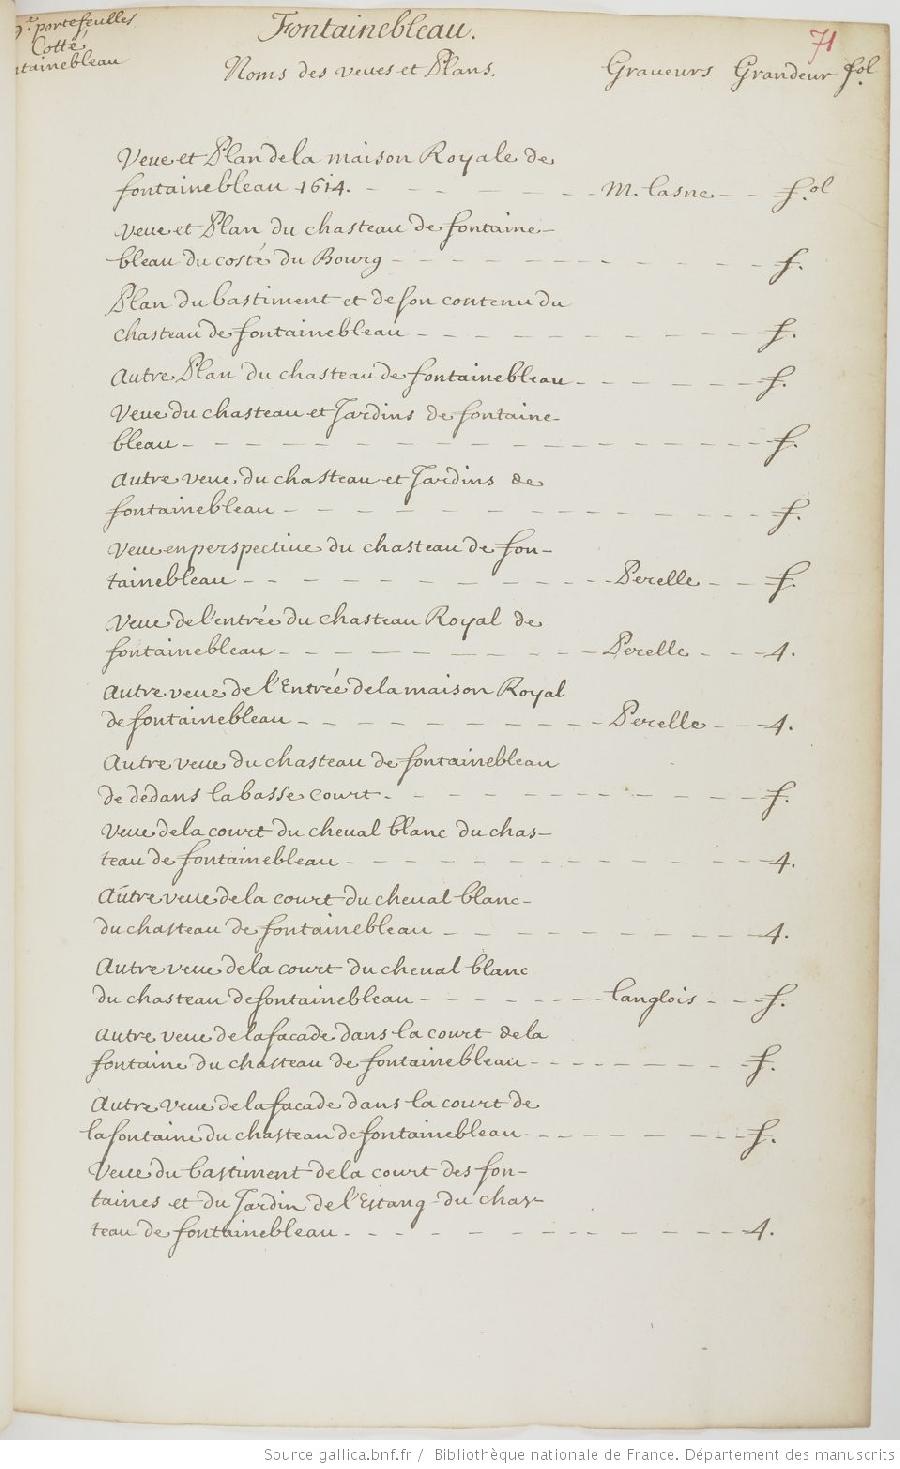 portefeuilles
Cotté
ntainebleau
Fontainebleau.
71
Noms des veues et Plans. Graveurs Grandeur fol.
Veue et Plan de la maison Royale de
fontainebleau 1614. - - - - - M. lasne - - f.ol
veue et Plan du chasteau de fontaine-
bleau du costé du Bourg - - - - - - - - - f.
Plan du bastiment et de son contenu du
chasteau de fontainebleau - - - - - - - - - f.
Autre Plan du chasteau de fontainebleau - - - - - f.
Veue du chasteau et Jardins de fontaine-
bleau - - - - - - - - - - - - - - f.
Autre veue du chasteau et Jardins de
fontainebleau - - - - - - - - - - - - f.
Veue en perspective du chasteau de fon-
tainebleau - - - - - - - - - Perelle - - f.
Veue de l'entrée du chasteau Royal de
fontainebleau - - - - - - - - Perelle - - 4.
Autre veue de l'Entrée de la maison Royal
de fontainebleau - - - - - - - - Perelle - - 4.
Autre veue du chasteau de fontainebleau
de dedans la basse court - - - - - - - - - f.
Veue de la court du cheval blanc du chas-
teau de fontainebleau - - - - - - - - - - - 4.
Autre veue de la court du cheval blanc
du chasteau de fontainebleau - - - - - - - - 4.
Autre veue de la court du cheval blanc
du chasteau de fontainebleau - - - - - langlois - - f.
Autre veue de la facade dans la court de la
fontaine du chasteau de fontainebleau - - - - - - f.
Autre veue de la facade dans la court de
la fontaine du chasteau de fontainebleau - - - - - - f.
Veue du bastiment de la court des fon-
taines et du Jardin de l'Estang du chas-
teau de fontainebleau - - - - - - - - - - 4.
Source gallica.bnf.fr / Bibliothèque nationale de France. Département des manuscrits